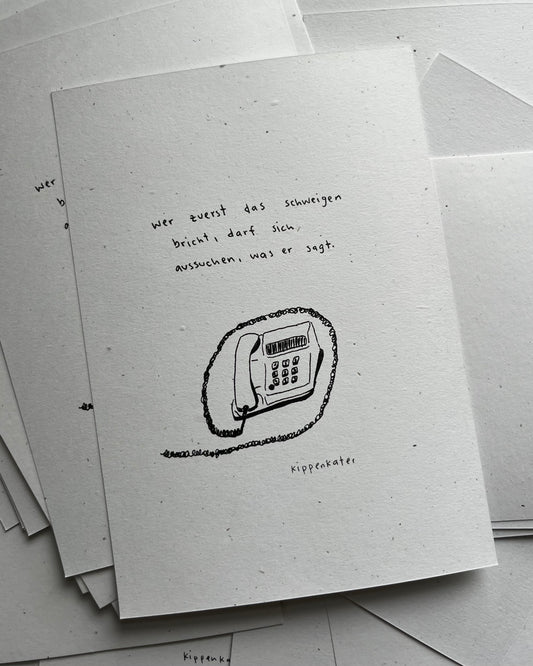 wer zuerst das schweigen
bricht, darf sich,
aussuchen, was er sagt.
kippenkater
wer
b
kippenk